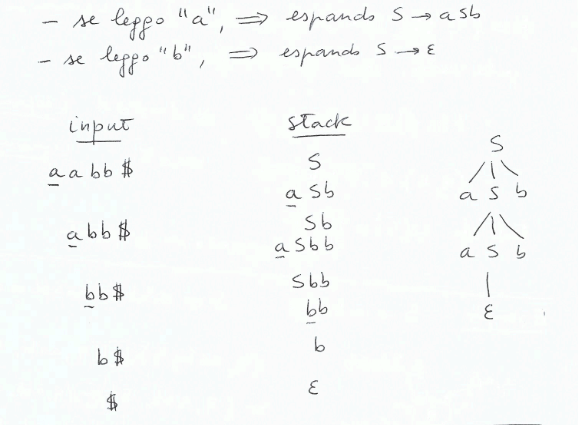 - se leggo "a", ⇒ espando S → aSb
- se leggo "b", ⇒ espando S → ε
input stack
S
aabb$ S
aSb a S b
abb$ Sb
aSbb a S b
bb$ Sbb
bb ε
b$ b
$ ε